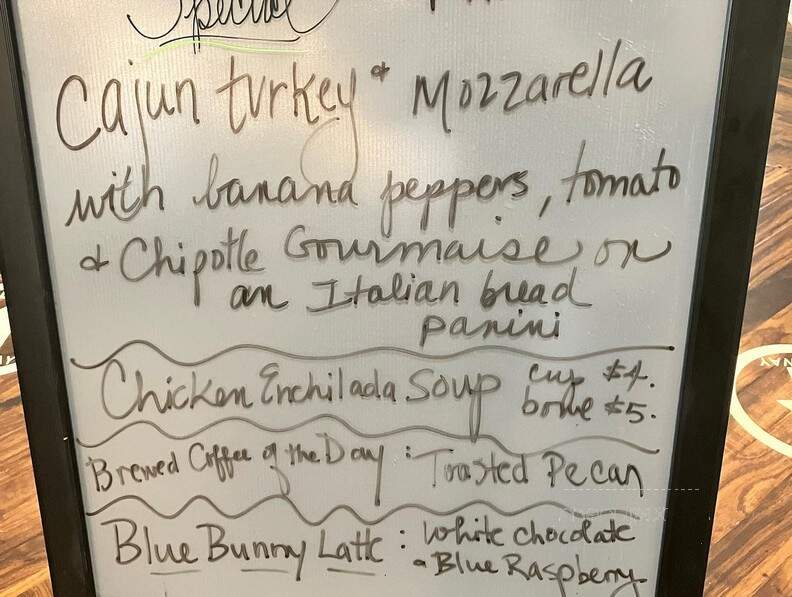 Special
Cajun turkey & Mozzarella
with banana peppers, tomato
& Chipotle Gourmaise on
an Italian bread
panini
Chicken Enchilada Soup cup $4.
bowl $5.
Brewed Coffee of the Day : Toasted Pecan
Blue Bunny Latte : White chocolate
& Blue Raspberry